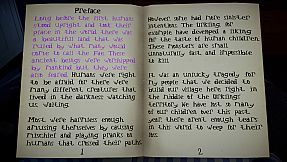 Preface
Long before the first human
stood upright and left their
place in the world there was
a beautiful land that was
ruled by what man, would
come to call the Fae. These
ancient beings were worshipped
by mankind but they were
also feared. Humans were right
to be afraid for there were
many different creatures that
lived in the darkness watching
us, waiting.
Most were harmless enough
amusing themselves by causing
mischief and playing pranks on
humans that crossed their paths.
1
However some had more sinister
intentions. The Urklings, for
example have developed a liking
for the taste of human children.
These monsters are small
unnaturally fast, and impossible
to kill.
It was an unlucky tragedy for
my people that we decided to
build our village here right in
the middle of the Urklings'
territory. We have lost so many
of our children over this past
year there aren't enough tears
in this world to weep for their
loss.
2